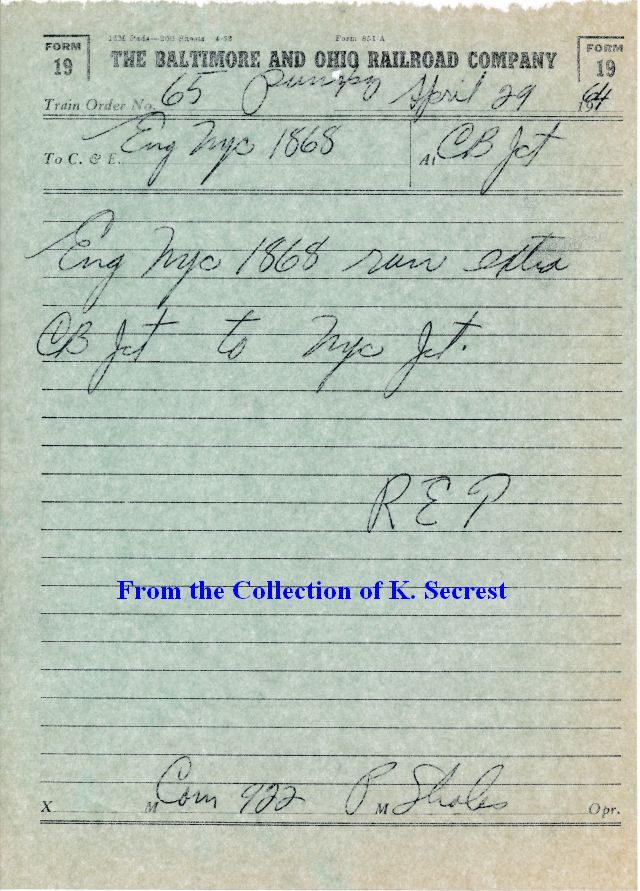 15M Pads—200 Sheets 4-58 Form 851 A
FORM 19 THE BALTIMORE AND OHIO RAILROAD COMPANY FORM 19
Train Order No. 65 April 29 1964
To C. & E. Eng Nyc 1868 At CB Jct
Eng Nyc 1868 run extra
CB Jct to Nyc Jct.
R E P
From the Collection of K. Secrest
X M Com 922 P M Sholes Opr.